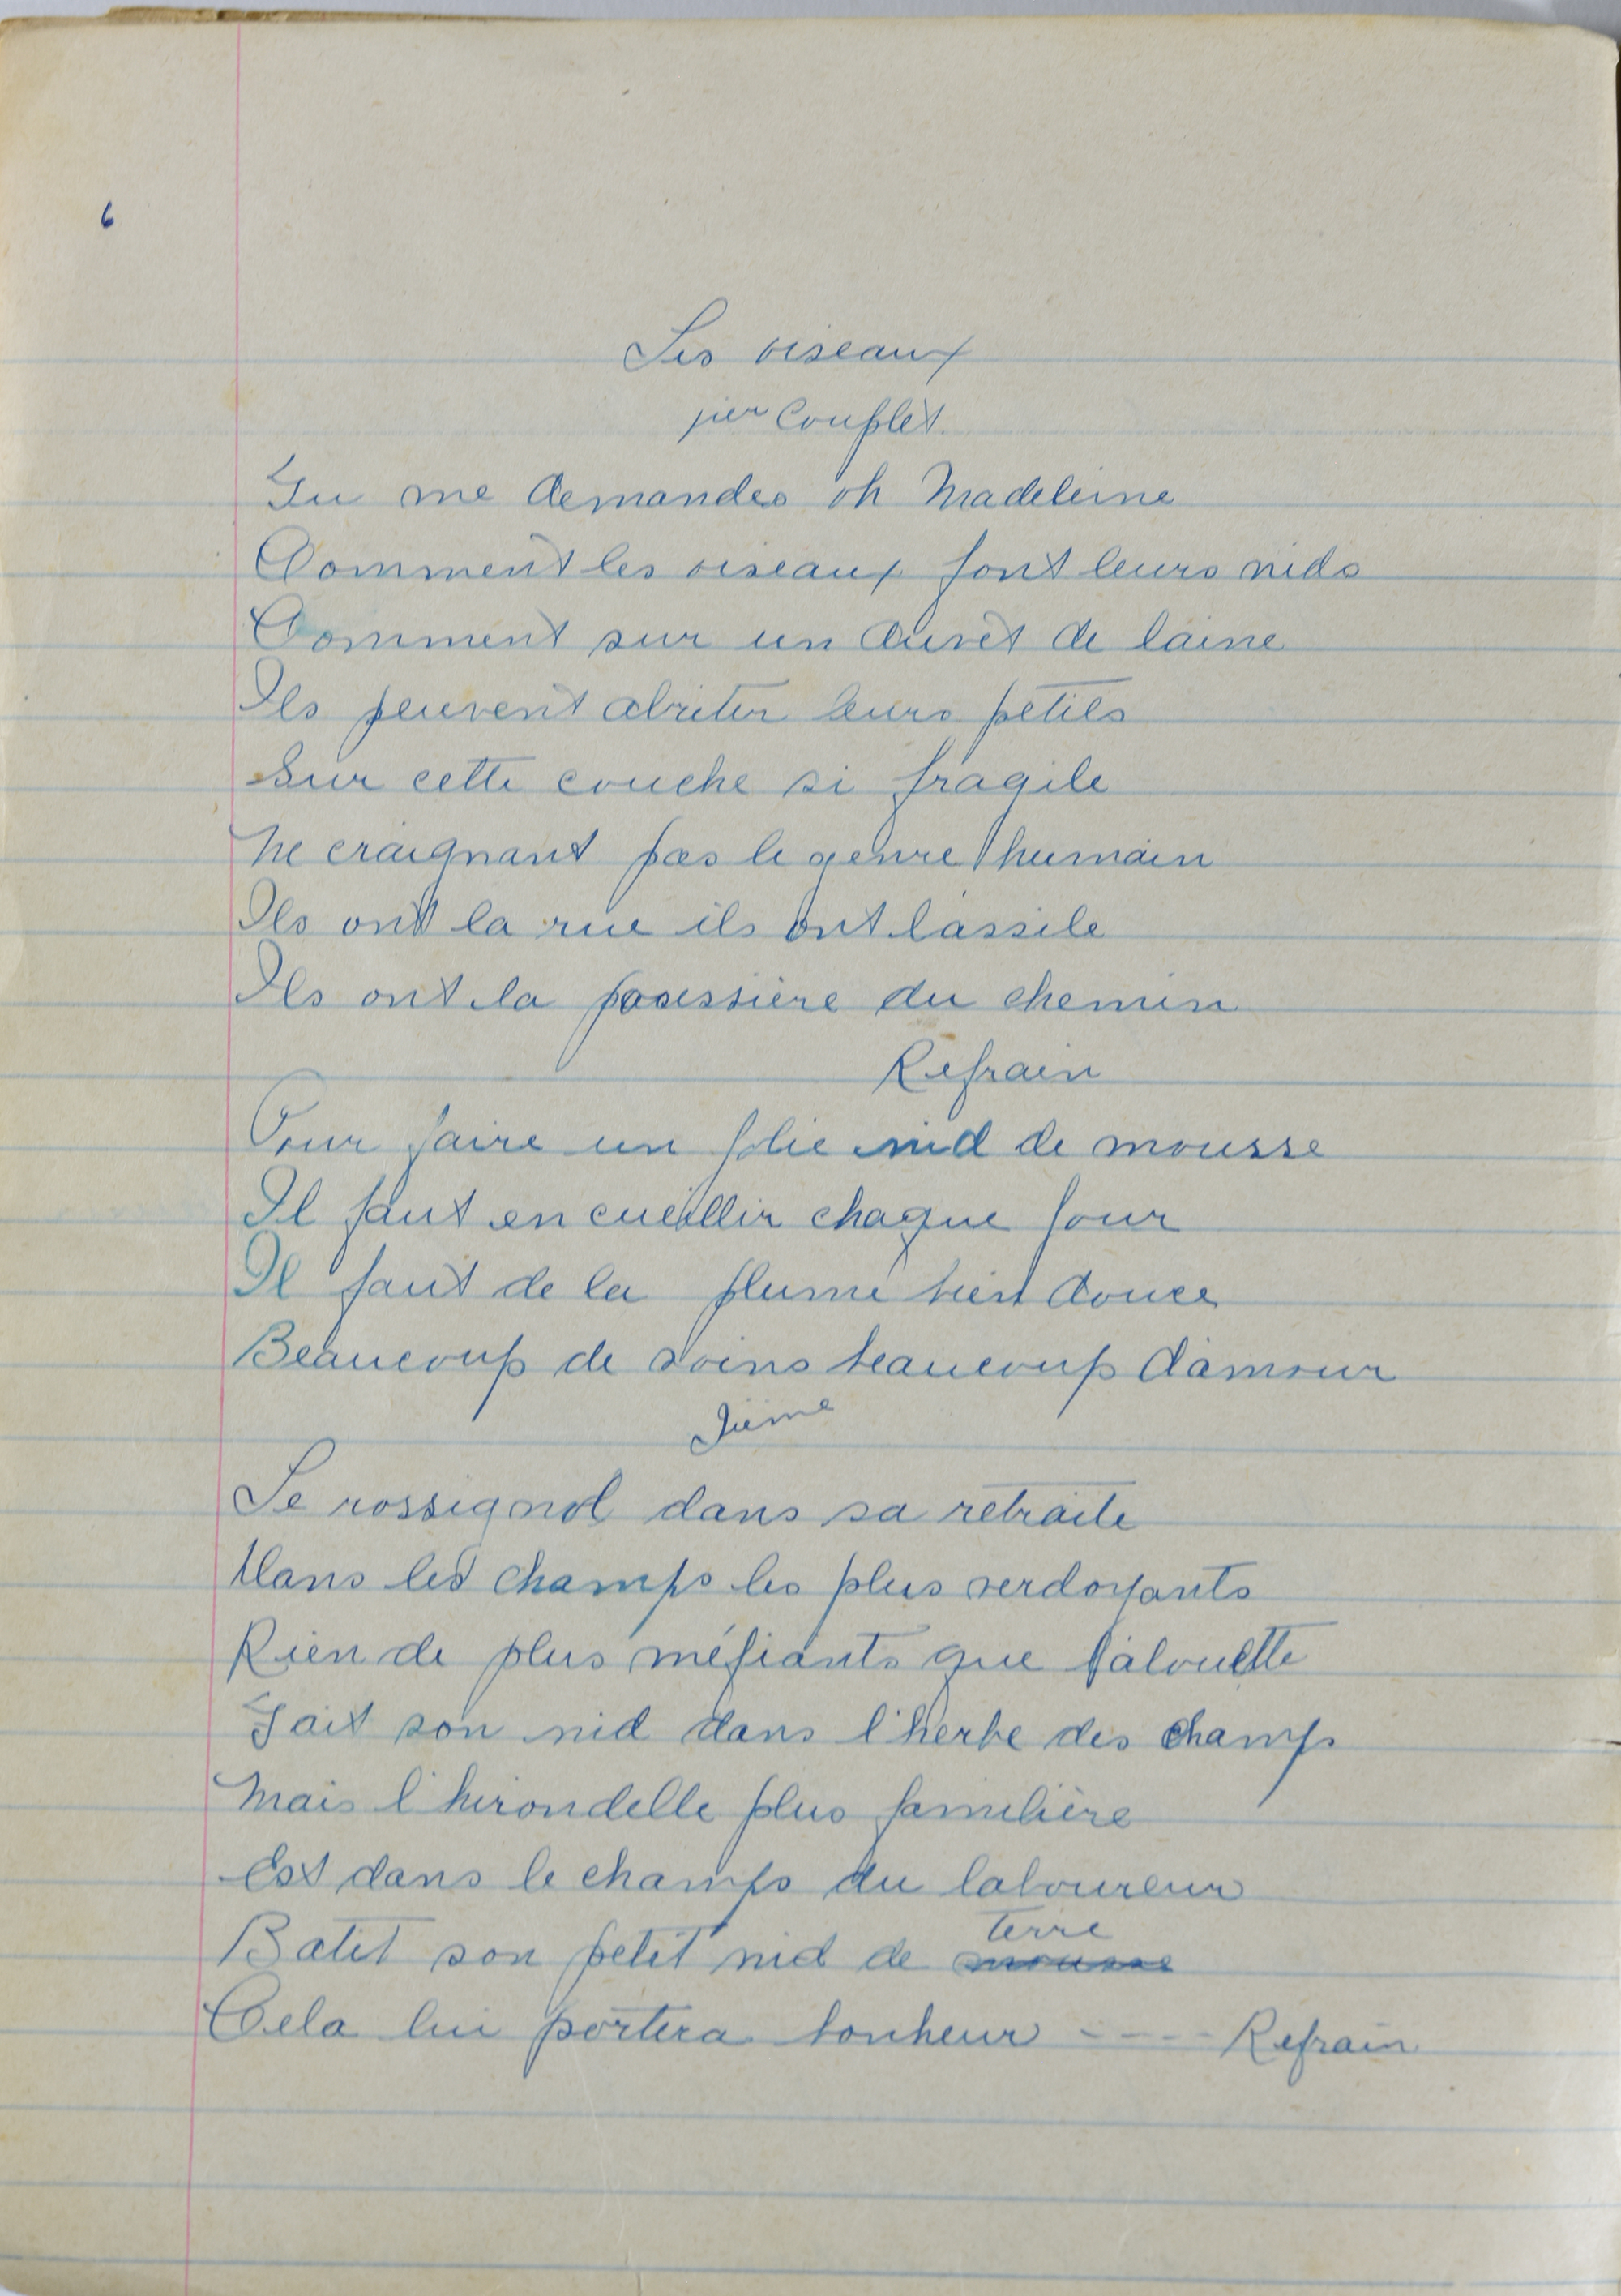 6
Les oiseaux
1er Couplet.
Tu me demandes oh Madeleine
Comment les oiseaux font leurs nids
Comment sur un duvet de laine
Ils peuvent abriter leurs petits
Sur cette couche si fragile
Ne craignant pas le genre humain
Ils ont la rue ils ont lassile
Ils ont la poussière du chemin
Refrain
Pour faire un jolie nid de mousse
Il faut en cueillir chaque jour
Il faut de la plume bien douce
Beaucoup de soins beaucoup d'amour
2ième
Le rossignol dans sa retraite
Dans les champs les plus verdoyants
Rien de plus méfiants que l'alouette
Fait son nid dans l'herbe des champs
Mais l'hirondelle plus familière
Est dans le champs du laboureur
Batit son petit nid de mousse terre
Cela lui portera bonheur ---- Refrain